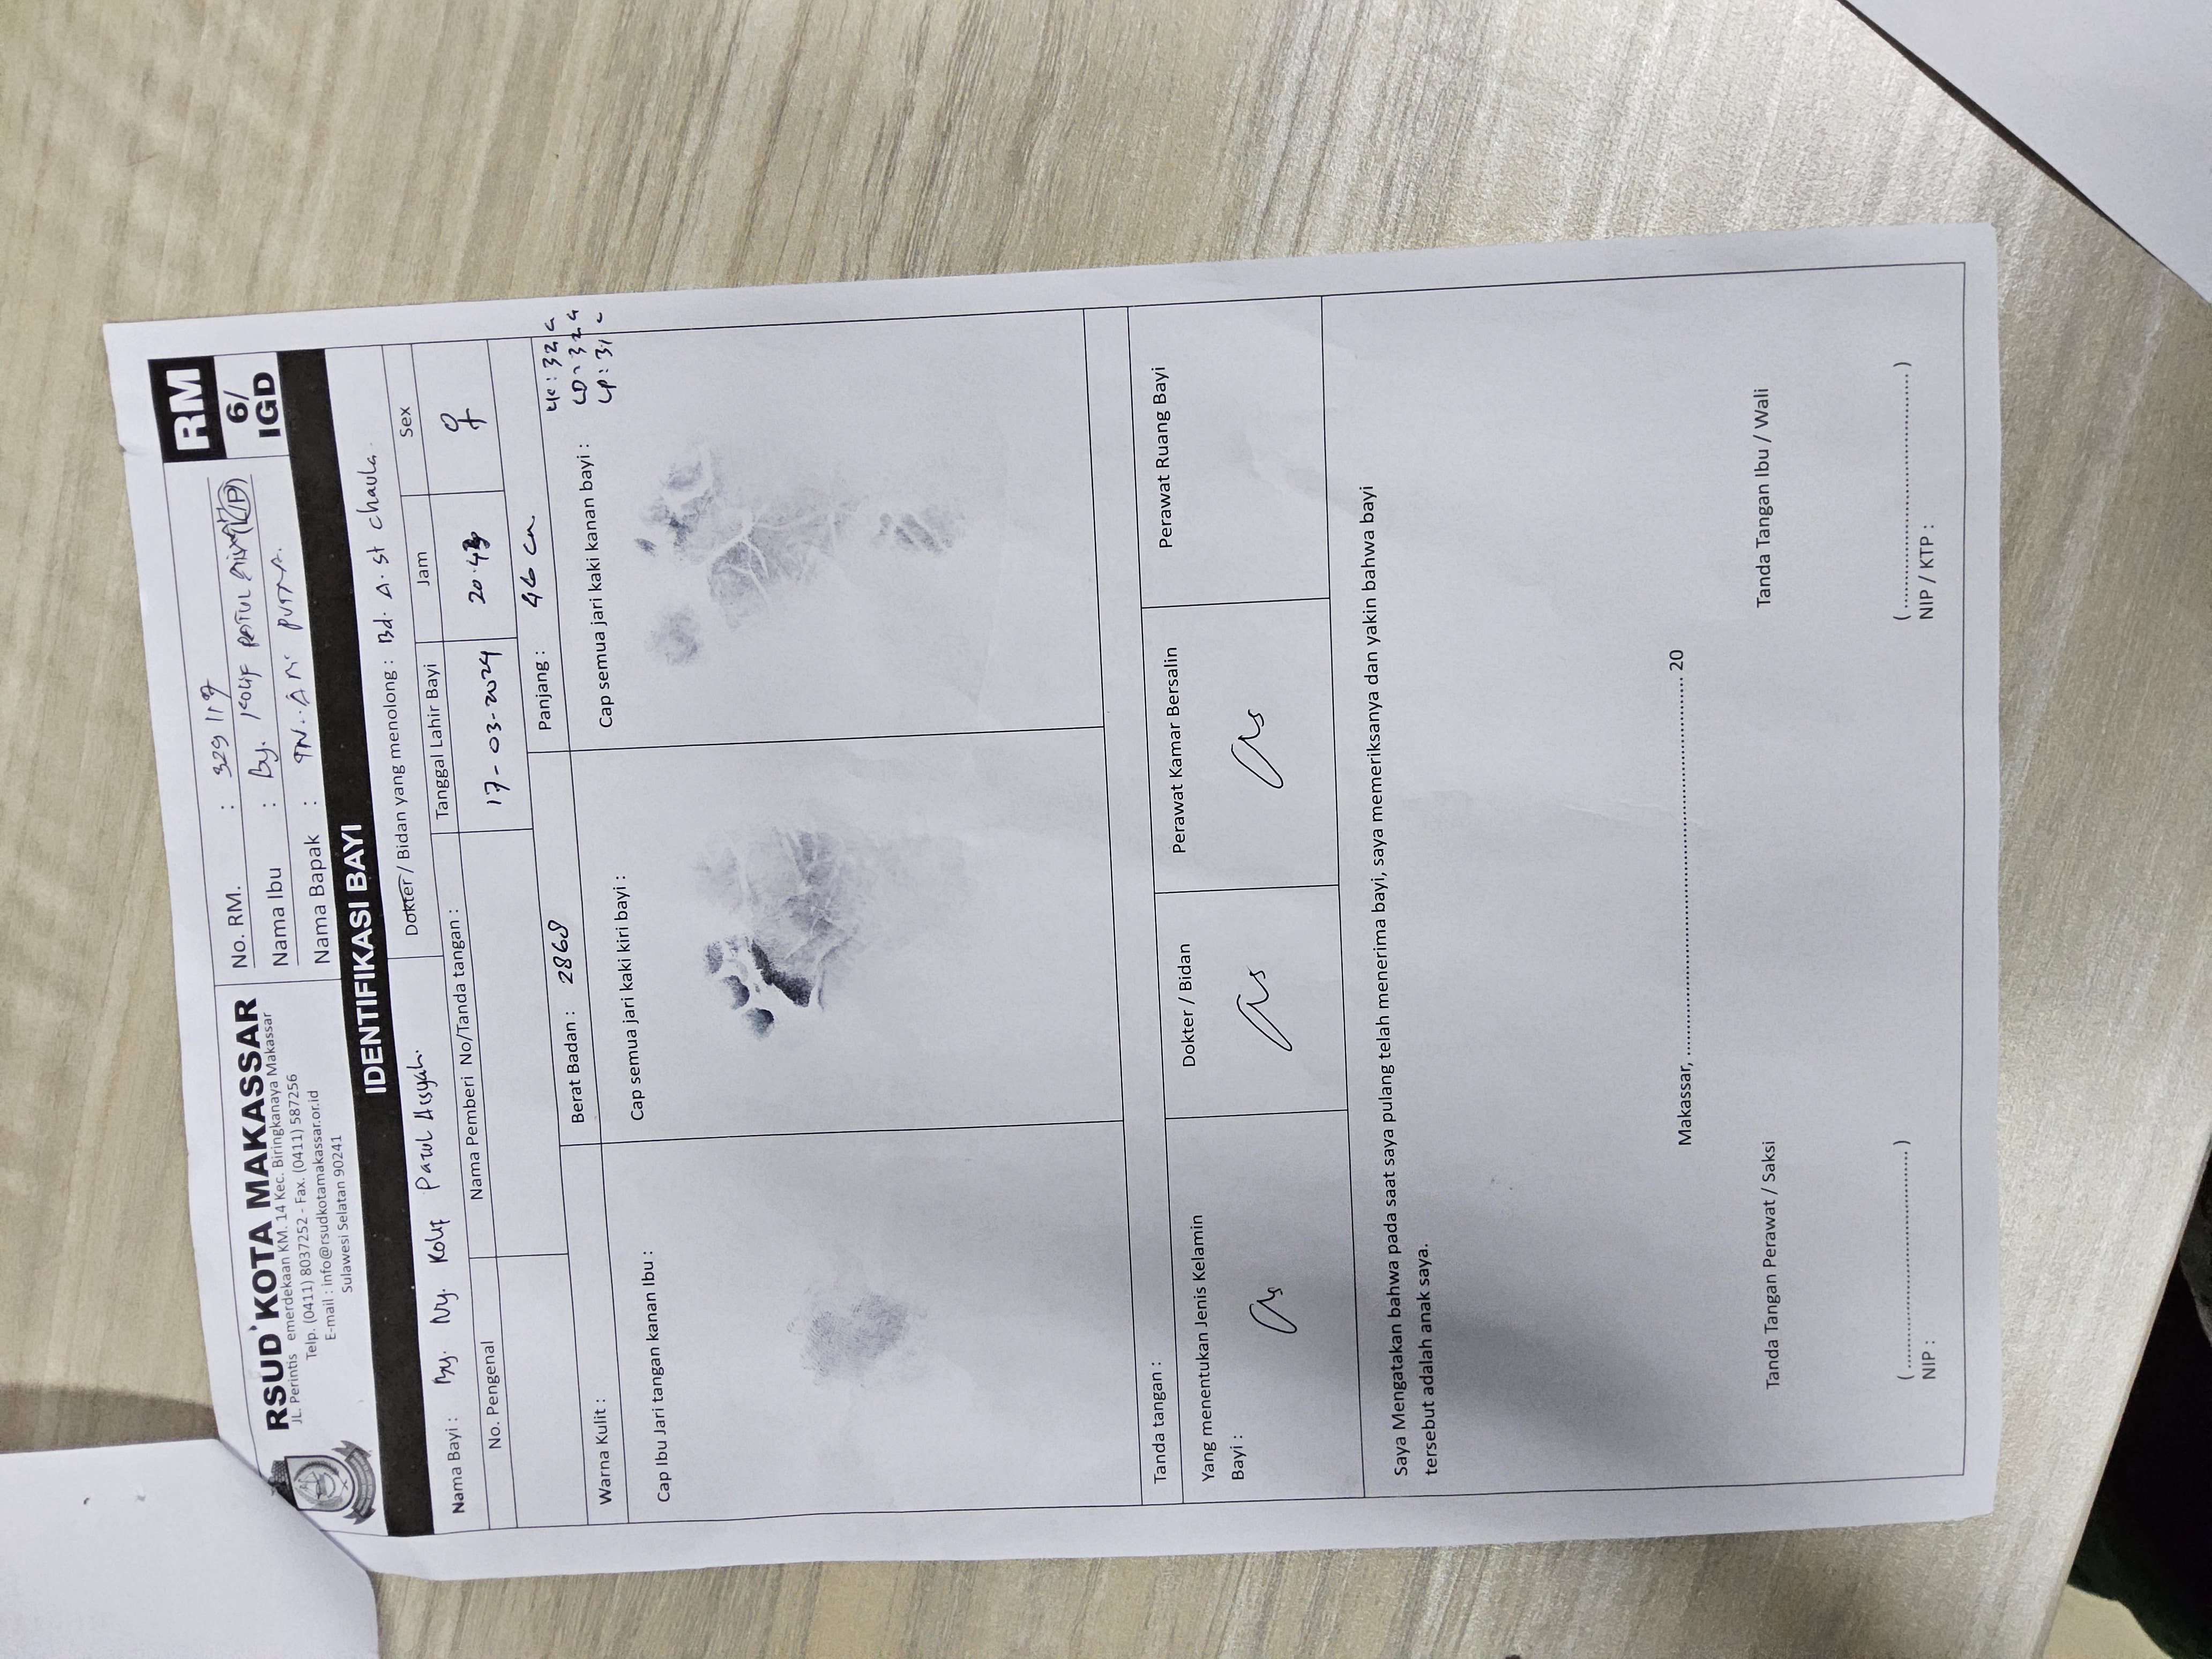 RSUD KOTA MAKASSAR
JL. Perintis emerdekaan KM. 14 Kec. Biringkanaya Makassar
Telp. (0411) 8037252 - Fax. (0411) 587256
E-mail : info@rsudkotamakassar.or.id
Sulawesi Selatan 90241
No. RM. : 329117
Nama Ibu : By.
Nama Bapak :
RM
6/
IGD
IDENTIFIKASI BAYI
Nama Bayi : By. Ny.
Dokter / Bidan yang menolong : Bd. A. St Chaula
No. Pengenal
Nama Pemberi No/Tanda tangan :
Tanggal Lahir Bayi
Jam
Sex
17-03-2024
♀
Warna Kulit :
Berat Badan : 2868
Panjang : 46 cm
Cap Ibu Jari tangan kanan Ibu :
Cap semua jari kaki kiri bayi :
Cap semua jari kaki kanan bayi :
Tanda tangan :
Yang menentukan Jenis Kelamin
Bayi :
Dokter / Bidan
Perawat Kamar Bersalin
Perawat Ruang Bayi
Saya Mengatakan bahwa pada saat saya pulang telah menerima bayi, saya memeriksanya dan yakin bahwa bayi
tersebut adalah anak saya.
Makassar, .................................................................. 20
Tanda Tangan Perawat / Saksi
Tanda Tangan Ibu / Wali
( ........................................ )
( ........................................ )
NIP :
NIP / KTP :